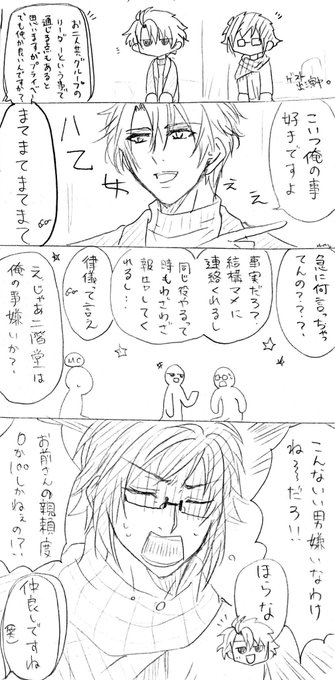 お二人共グループの
リーダーという事で
通じる点もあると
思いますがプライベ
でも仲がいいんですか?
ゲスト
出演中。
こいつ俺の事
好きですよ
ハテ
まてまてまてまて
急に何言っちゃっ
てんの????
事実だろ?
結構マメに
連絡くれるし
同じ役やるって
時もわざわざ
報告してく
れるし…
律儀って言え
MC
えじゃあ二階堂は
俺の事嫌いか?
こんないい男嫌いなわけ
ねぇだろ!!
ほらな
お前さんの親頼度
0か100しかねぇの!?
仲良しですね
(笑)